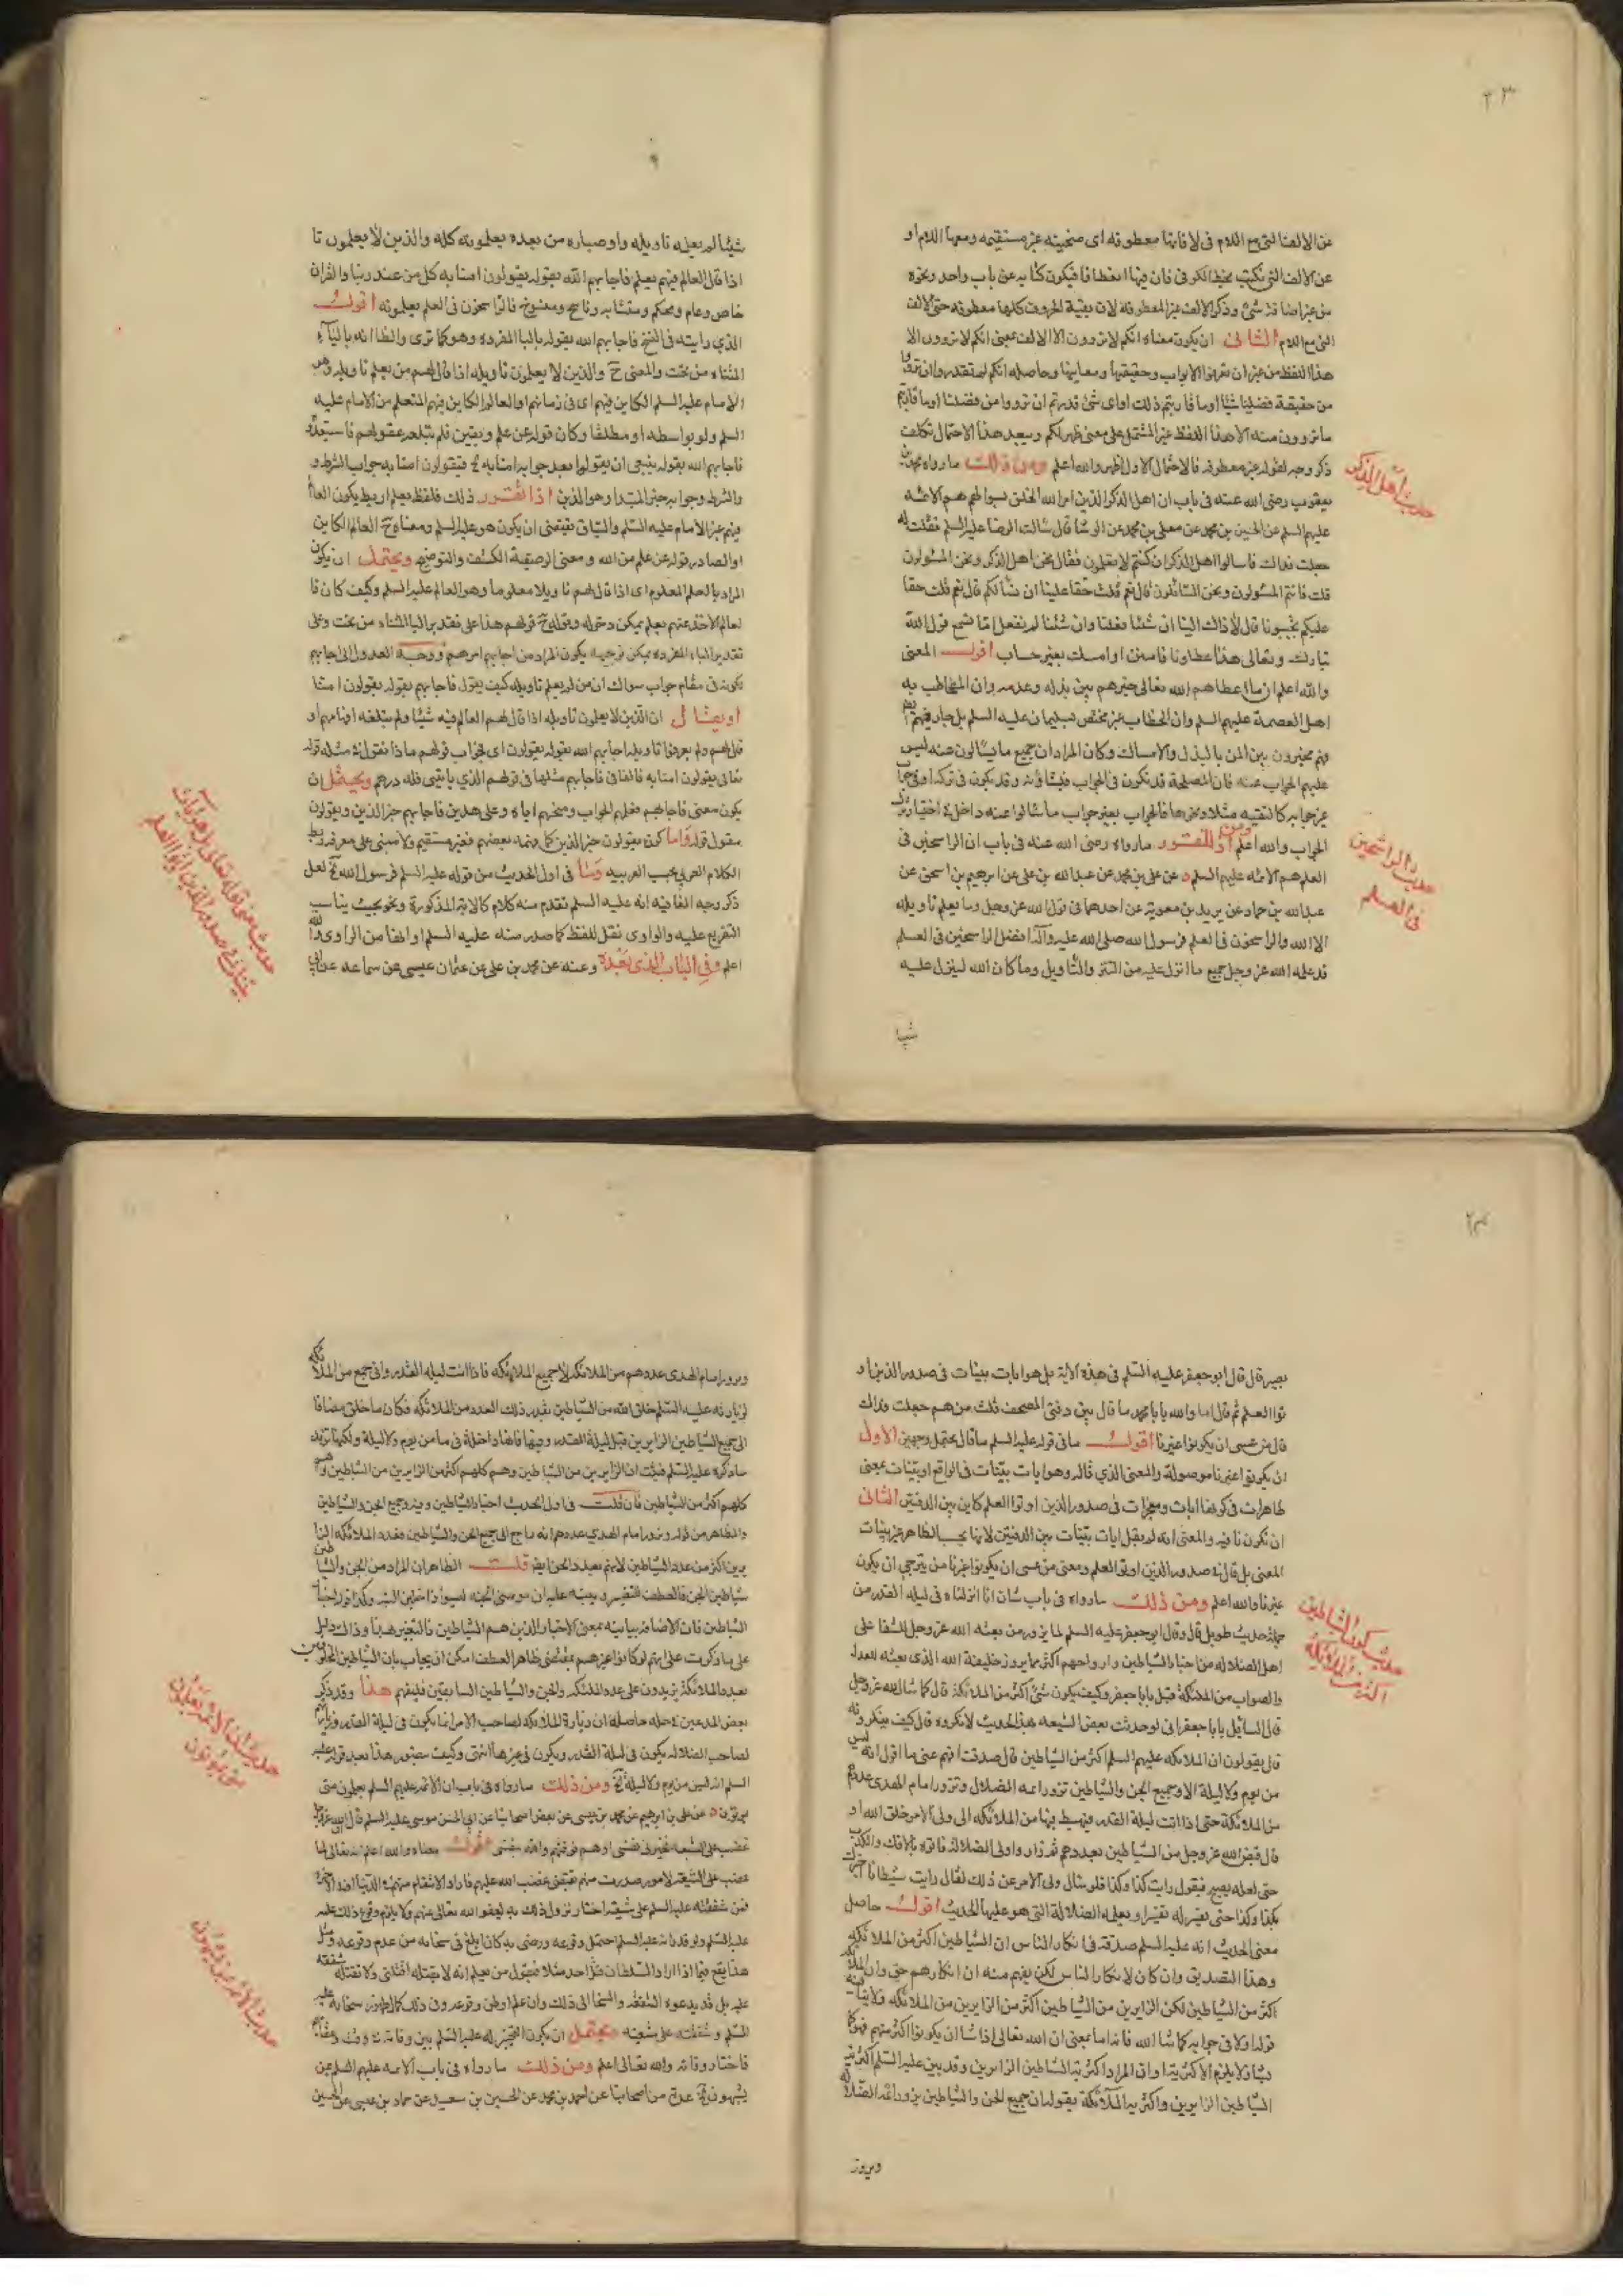 ٢٣
عن الالف التى مع اللام فى لا فانها معطوفه اى منحنيه غير مستقيمه ومعها اللام او
عن الالف التى تكتب بخط الكوفى فان فيها انعطافا فيكون كنايه عن باب واحد ونحوه
وذكر الالف غير المعطوفه لان بقية الحروف كلها معطوفه حتى الالف
التى مع اللام الثانى ان يكون معناه انكم لا تروون الا الالف بمعنى انكم لا تروون الا
هذا اللفظ من غير ان تعرفوا الابواب وحقيقتها ومعانيها وحاصله انكم لم تقدروا ان ترووا
من حقيقة فضلنا شيئا او ما قاربتم ذلك او اى شئ قدرتم ان ترووا من فضلنا او ما قاربتم
ما تروون منه الا هذا اللفظ غير المشتمل على معنى ظهر لكم ويبعد هذا الاحتمال تكلف
ذكر وجه لقوله غير معطوفه فالاحتمال الاول اظهر والله اعلم ومن ذلك ما رواه محمد بن
يعقوب رضى الله عنه فى باب ان اهل الذكر الذين امر الله الخلق بسوالهم هم الائمه
عليهم السلم عن الحسين بن محمد عن معلى بن محمد عن الوشا قال سالت الرضا عليه السلم فقلت له
جعلت فداك فاسالوا اهل الذكر ان كنتم لا تعلمون فقال نحن اهل الذكر ونحن المسئولون
قلت فانتم المسئولون ونحن السائلون قال نعم قلت حقا علينا ان نسألكم قال نعم قلت حقا
عليكم تجيبونا قال لا ذاك الينا ان شئنا فعلنا وان شئنا لم نفعل اما تسمع قول الله
تبارك وتعالى هذا عطاونا فامنن او امسك بغير حساب اقول المعنى
والله اعلم ان ما اعطاهم الله تعالى خيرهم بين بذله وعدمه وان المخاطب به
اهل العصمة عليهم السلم وان الخطاب غير مختص بسليمان عليه السلم بل جار فيهم
فهم مخيرون بين المن بالبذل والامساك وكان المراد ان جميع ما يسالون عنه ليس
عليهم الجواب عنه فان المصلحة قد تكون فى الجواب وقد يكون فى تركه
غير جوابه كالتقيه مثلا ونحوها فالجواب بغير جواب ما سالوا عنه داخل فى اختيار
الجواب والله اعلم ومن ما رواه رضى الله عنه فى باب ان الراسخين فى
العلم هم الائمه عليهم السلم عن على بن محمد عن عبدالله بن على عن ابرهيم بن اسحق عن
عبدالله بن حماد عن بريد بن معوية عن احدهما فى قول الله عز وجل وما يعلم تاويله
الا الله والراسخون فى العلم فرسول الله صلى الله عليه وآله افضل الراسخين فى العلم
قد علمه الله عز وجل جميع ما انزل عليه من التنزيل والتاويل وما كان الله لينزل عليه
شيئا
حديث اهل الذكر
حديث الراسخين
فى العلم
شيئا لم يعلمه تاويله واوصياره من بعده يعلمونه كله والذين لا يعلمون تا
اذا قال العالم فيهم بعلم فاجابهم الله بقوله يقولون امنا به كل من عند ربنا والقران
خاص وعام ومحكم ومتشابه وناسخ ومنسوخ فالراسخون فى العلم يعلمونه اقول
الذي رايته فى النسخ فاجابهم الله بقوله بالبا المفرده وهو كما ترى والظاهر انه بالياء
المثناه من تحت والمعنى ح والذين لا يعلمون تاويله اذا قال لهم من يعلم تاويله وهو
الامام عليه السلم الكاين فيهم اى فى زمانهم او العالم الكاين فيهم المتعلم من الامام عليه
السلم ولو بواسطه او مطلقا وكان قوله عن علم ويقين فلم تبلغه عقولهم
فاجابهم الله بقوله ينبغى ان يقولوا بعد جوابه امنا به فيقولون امنا به جواب الشرط و
والشرط وجوابه خبر المبتدا وهو الذين اذا تقرر ذلك فلفظ بعلم
فيهم غير الامام عليه السلم والسياق يقتضى ان يكون هو عليه السلم ومعناه ح العالم الكاين
او الصادر قوله عن علم من الله ومعنى الوصفية الكشف والتوضيح ويحتمل ان يكون
المراد بالعلم المعلوم اى اذا قال لهم تاويلا معلوما وهو العالم عليه السلم وكيف كان فا
لعالم الاخذ عنهم بعلم يمكن دخوله وقوله ح قولهم هذا على تقدير اليا المثناه من تحت وعلى
تقدير الباء المفرده يمكن توجيهه بكون المراد من اجابهم امرهم ووجه العدول الى اجابهم
كونه فى مقام جواب سوال ان من لم يعلم تاويله كيف يقول فاجابهم بقوله يقولون امنا
او يقال ان الذين لا يعلمون تاويله اذا قال لهم العالم فيه شيئا ولم تبلغه افهامهم او
قبل لهم ولم يعرفوا تاويله اجابهم الله بقوله يقولون اى لجواب قولهم ماذا نقول
تعالى يقولون امنا به فالفا فى فاجابهم مثلها فى قولهم الذي ياتينى فله درهم ويحتمل ان
يكون معنى فاجابهم فعلمهم الجواب ومنحهم اياه وعلى هذين فاجابهم خبر الذين ويقولون
مقول قوله واما كون يقولون خبر الذين كما فهمه بعضهم فغير مستقيم ولا مبنى على معرفة ربط
الكلام العربى بحسب العربيه وفى اول الحديث من قوله عليه السلم فرسول الله الخ لعل
ذكر وجه الفا فيه انه عليه السلم تقدم منه كلام كالايه المذكورة ونحو بحيث يناسب
التفريع عليه والراوى نقل اللفظ كما صدر منه عليه السلم او الفا من الراوى والله
اعلم وفى الباب الذى بعده وعنه عن محمد بن على عن عثمان بن عيسى عن سماعه عن ابى
حديث معنى قوله تعالى بل هو ايات
بينات فى صدور الذين اوتوا العلم
٢٤
بصير قال قال ابو جعفر عليه السلم فى هذه الاية بل هو ايات بينات فى صدور الذين او
توا العلم ثم قال اما والله يا با محمد ما قال بين دفتى المصحف قلت من هم جعلت فداك
قال من عسى ان يكونوا غيرنا اقول ما فى قوله عليه السلم ما قال يحتمل وجهين الاول
ان يكونوا غيرنا موصولة والمعنى الذي قاله وهو ايات بينات فى الواقع او بينات بمعنى
ظاهرات فى كونها ايات ومعجزات فى صدور الذين اوتوا العلم كاين بين الدفتين الثانى
ان تكون نافيه والمعنى انه لم يقل ايات بينات بين الدفتين لانها بحسب الظاهر غير بينات
المعنى بل قال فى صدور الذين اوتوا العلم ومعنى من عسى ان يكونوا غيرنا من يترجى ان يكون
غيرنا والله اعلم ومن ذلك ما رواه فى باب شان انا انزلناه فى ليلة القدر من
جملة حديث طويل قال وقال ابو جعفر عليه السلم لما يزور من بعثه الله عز وجل للشقا على
اهل الضلاله من اجناد الشياطين وارواحهم اكثر مما يزور خليفة الله الذى بعثه للعدل
والصواب من الملائكه قيل يا با جعفر وكيف يكون شئ اكثر من الملائكة قال كما شا الله عز وجل
قال السايل يا با جعفر انى لو حدثت بعض الشيعه بهذا الحديث لانكروه قال كيف ينكرونه
قال يقولون ان الملائكه عليهم السلم اكثر من الشياطين قال صدقت افهم عنى ما اقول انه ليس
من يوم ولا ليلة الا وجميع الجن والشياطين تزور ائمه الضلال وتزور امام الهدى عددهم
من الملائكة حتى اذا اتت ليلة القدر فيهبط فيها من الملائكه الى ولى الامر خلق الله او
قال قيض الله عز وجل من الشياطين بعددهم ثم زاروا ولى الضلالة فاتوه بالافك والكذب
حتى لعله يصبح فيقول رايت كذا وكذا فلو سال ولى الامر عن ذلك لقال رايت شيطانا اخبرك
بكذا وكذا حتى يفسر له تفسيرا ويعلمه الضلالة التى هو عليها الحديث اقول حاصل
معنى الحديث انه عليه السلم صدقه فى انكار الناس ان الشياطين اكثر من الملائكه
وهذا التصديق وان كان لانكار الناس لكن يفهم منه ان انكارهم حق وان الملائكه
اكثر من الشياطين لكن الزايرين من الشياطين اكثر من الزايرين من الملائكه
قوله اولا فى جوابه كما شا الله فانه اما بمعنى ان الله تعالى اذا شا ان يكونوا اكثر منهم
او ان المراد اكثرية الشياطين الزايرين وقد بين عليه السلم اكثرية
الشياطين الزايرين واكثرية الملائكة بقوله ان جميع الجن والشياطين يزور ائمة الضلالة
ويزور
حديث كون الشياطين
اكثر من الملائكة
ويزور امام الهدى عددهم من الملائكه لا جميع الملائكه فاذا اتت ليلة القدر واتى جميع من الملائكه
لزيارته عليه السلم خلق الله من الشياطين بقدر ذلك العدد من الملائكه فكان ما خلق مضافا
الى جميع الشياطين الزايرين قبل ليلة القدر وفيها فانها داخلة فى ما من يوم ولا ليلة
ما ذكره عليه السلم فثبت ان الزايرين من الشياطين وهم كلهم اكثر من الزايرين من الشياطين وهم
كلهم اكثر من الشياطين فان قلت فى اول الحديث اجناد الشياطين وفيه وجميع الجن والشياطين
والظاهر من قوله ويزور امام الهدى عددهم انه راجع الى جميع الجن والشياطين فعدد الملائكه الزا
يرين اكثر من عدد الشياطين لانهم بعدد الجن ايضا قلت الظاهر ان المراد من الجن والشياطين
شياطين الجن فالعطف للتفسير
الشياطين فان الاضافه بيانيه بمعنى الاجناد الذين هم الشياطين
على ما ذكرت على انهم لو كانوا غيرهم بمقتضى ظاهر العطف امكن ان يجاب بان الشياطين المخلوقين
بعدد الملائكة يزيدون على عدد الملائكه والجن والشياطين السابقين فليفهم هذا وقد ذكر
بعض المدعين فى حله ما حاصله ان زيارة الملائكه لصاحب الامر انما يكون فى ليلة القدر وزيارتهم
لصاحب الضلاله يكون فى ليلة القدر ويكون فى غيرها انتهى وكيف يتصور هذا بعد قوله عليه
السلم انه ليس من يوم ولا ليلة الخ ومن ذلك ما رواه فى باب ان الائمه عليهم السلم يعلمون متى
يموتون عن على بن ابرهيم عن محمد بن عيسى عن بعض اصحابنا عن ابى الحسن موسى عليه السلم قال ان الله عز وجل
غضب على الشيعه فخيرنى نفسى او هم فوقيتهم والله بنفسى اقول معناه والله اعلم انه تعالى لما
غضب على الشيعه لامور صدرت منهم تقتضى غضب الله عليهم فاراد الانتقام منهم فى الدنيا او فى الاخرة
فمن شفقته عليه السلم على شيعته اختار نزول ذلك به ليعفو الله تعالى عنهم ولا يلزم وقوع ذلك عليه
عليه السلم احتمل وقوعه ورضى به كان ابلغ فى سخائه من عدم وقوعه ومثل
هذا يقع فيما اذا اراد السلطان قتل احد مثلا فيقول من يعلم انه لا يقتله اقتلنى ولا تقتله شفقته
عليه بل قد يدعوه الشفقه والسخا الى ذلك وان علم او ظن وقوعه
السلم وشفقته على شيعته ويحتمل ان يكون التخيير له عليه السلم بين وفاته
فاختار وفاته والله تعالى اعلم ومن ذلك ما رواه فى باب الائمه عليهم السلم
عدة من اصحابنا عن احمد بن محمد عن الحسين بن سعيد عن حماد بن عيسى عن الحسين
حديث ان الائمة يعلمون
متى يموتون